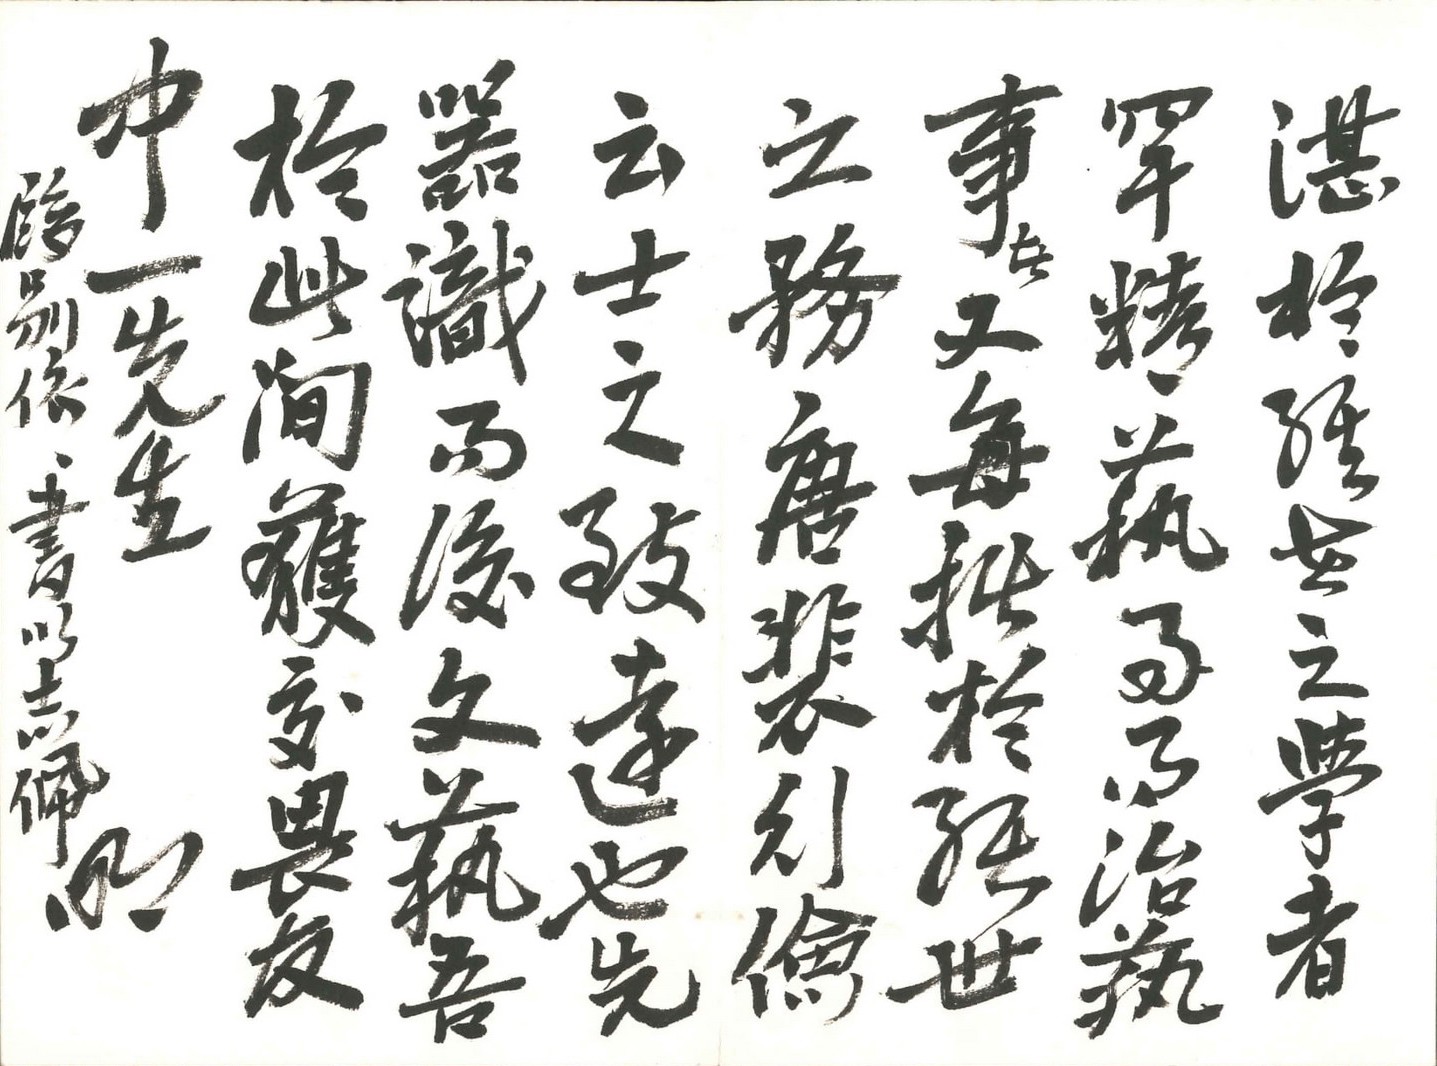 湛於經世之學者
罕精藝事而治藝
事者又每拙於經世
之務唐裴行儉
云士之致遠也先
器識而後文藝吾
於此洵獲交畏友
中一先生
臨別依、書以志佩